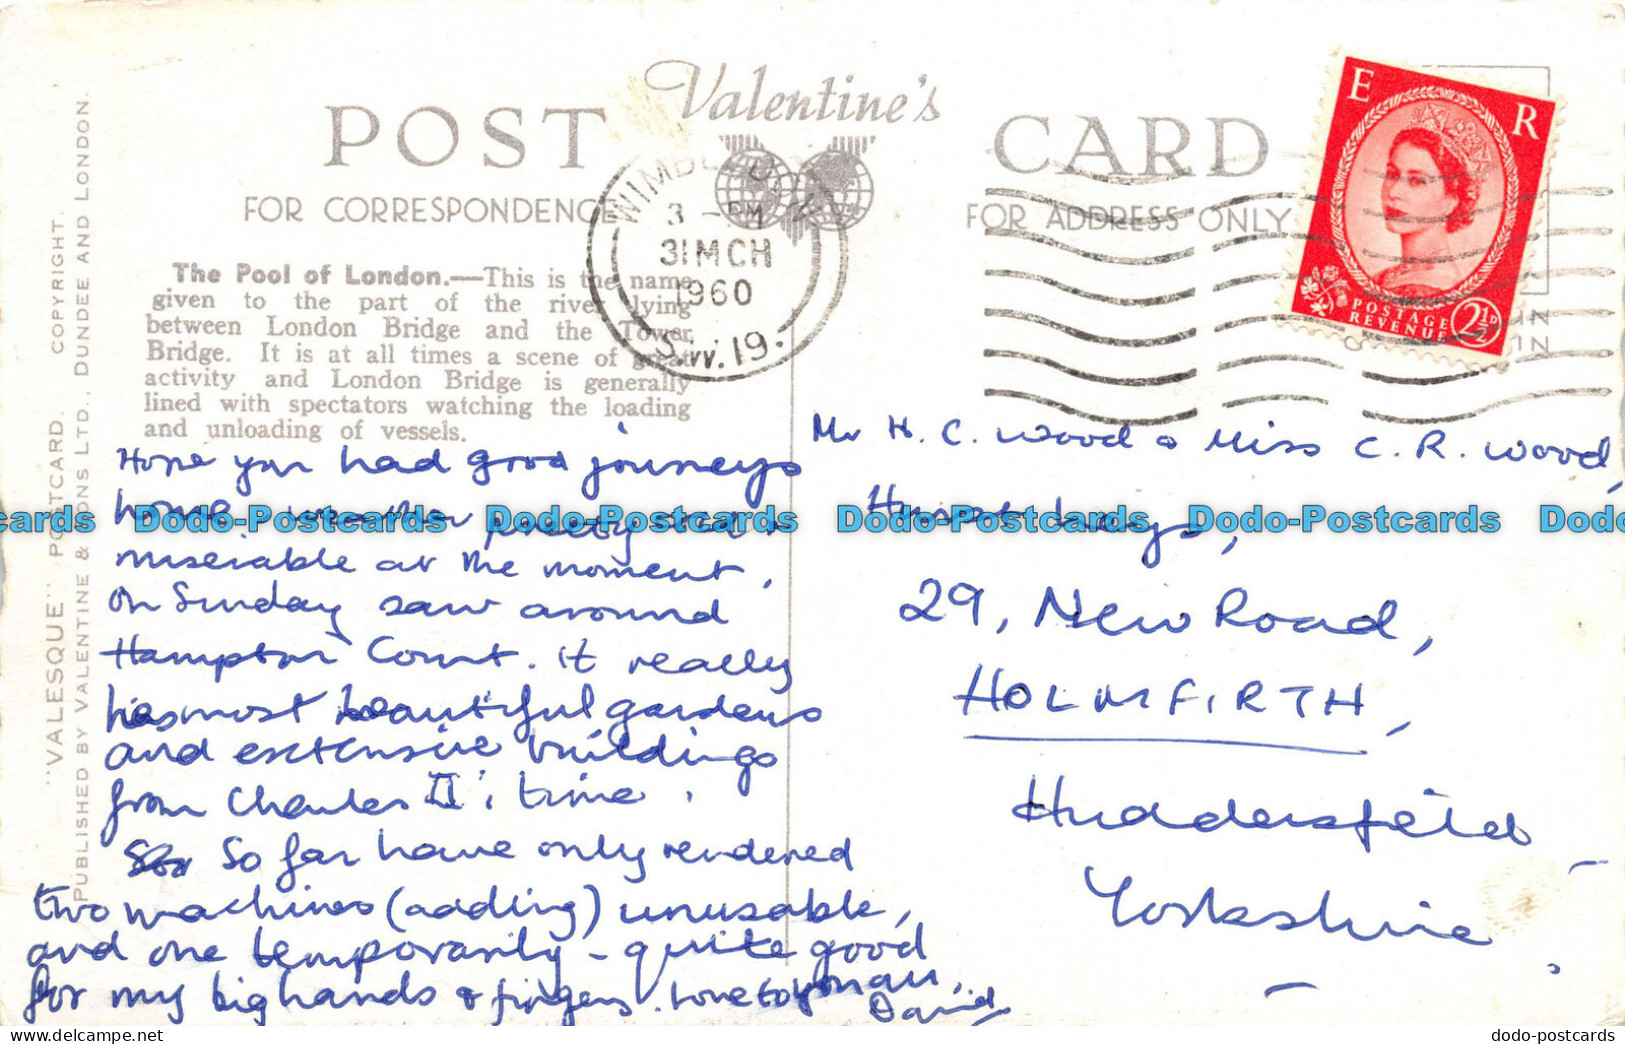 Valentine's
POST CARD
FOR CORRESPONDENCE
FOR ADDRESS ONLY
WIMBLEDON
3 - PM
31 MCH
1960
S.W.19.
E R
POSTAGE
REVENUE
2½D
The Pool of London.—This is the name
given to the part of the river lying
between London Bridge and the Tower
Bridge. It is at all times a scene of great
activity and London Bridge is generally
lined with spectators watching the loading
and unloading of vessels.
"VALESQUE" POSTCARD. COPYRIGHT.
PUBLISHED BY VALENTINE & SONS LTD., DUNDEE AND LONDON.
Hope you had good journeys
home weather pretty
miserable at the moment.
On Sunday saw around
Hampton Court. It really
has most beautiful gardens
and extensive buildings
from Charles II's time.
So far have only rendered
two machines (adding) unusable,
and one temporarily - quite good
for my big hands & fingers. Love to you all,
David
Mr H. C. Wood & Miss C. R. Wood,
29, New Road,
HOLMFIRTH,
Huddersfield
Yorkshire
Dodo-Postcards Dodo-Postcards Dodo-Postcards Dodo-Postcards
dodo-postcards